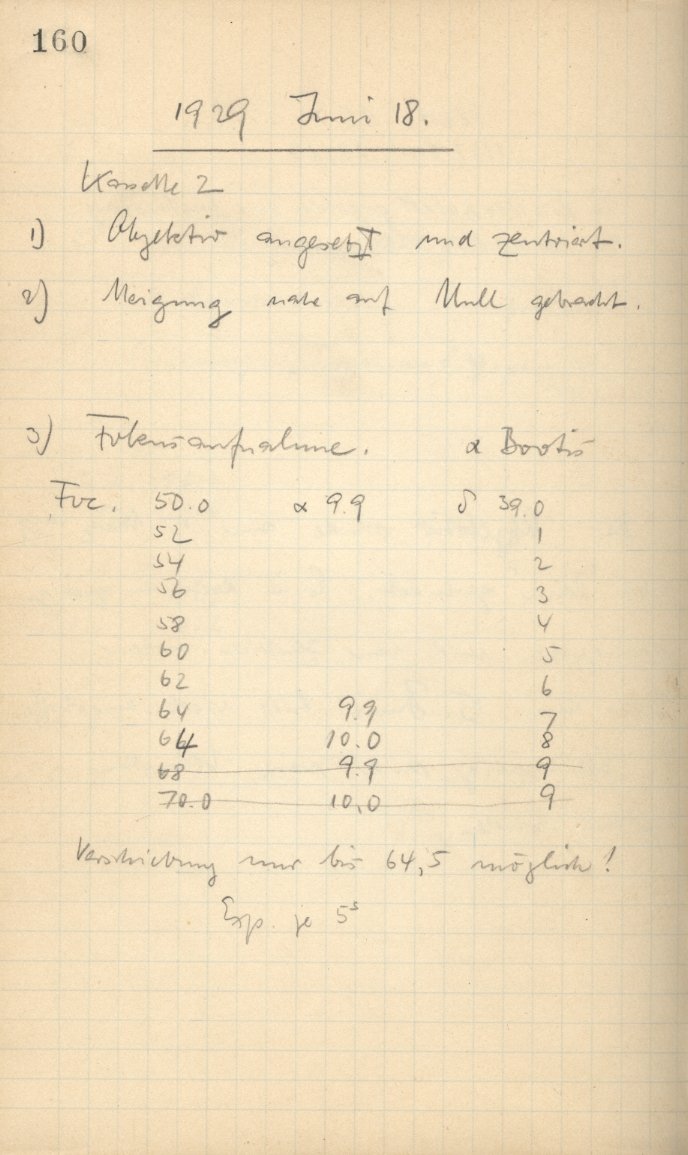 160
1929 Juni 18.
Kassette 2
1) Objektiv angesetzt und zentriert.
2) Neigung nahe auf Null gebracht.
3) Fokusaufnahme. α Bootis
Foc. 50.0 α 9.9 δ 39.0
52 1
54 2
56 3
58 4
60 5
62 6
64 9.9 7
64 10.0 8
68 9.9 9
70.0 10,0 9
Verschiebung nur bis 64,5 möglich!
Exp. je 5s